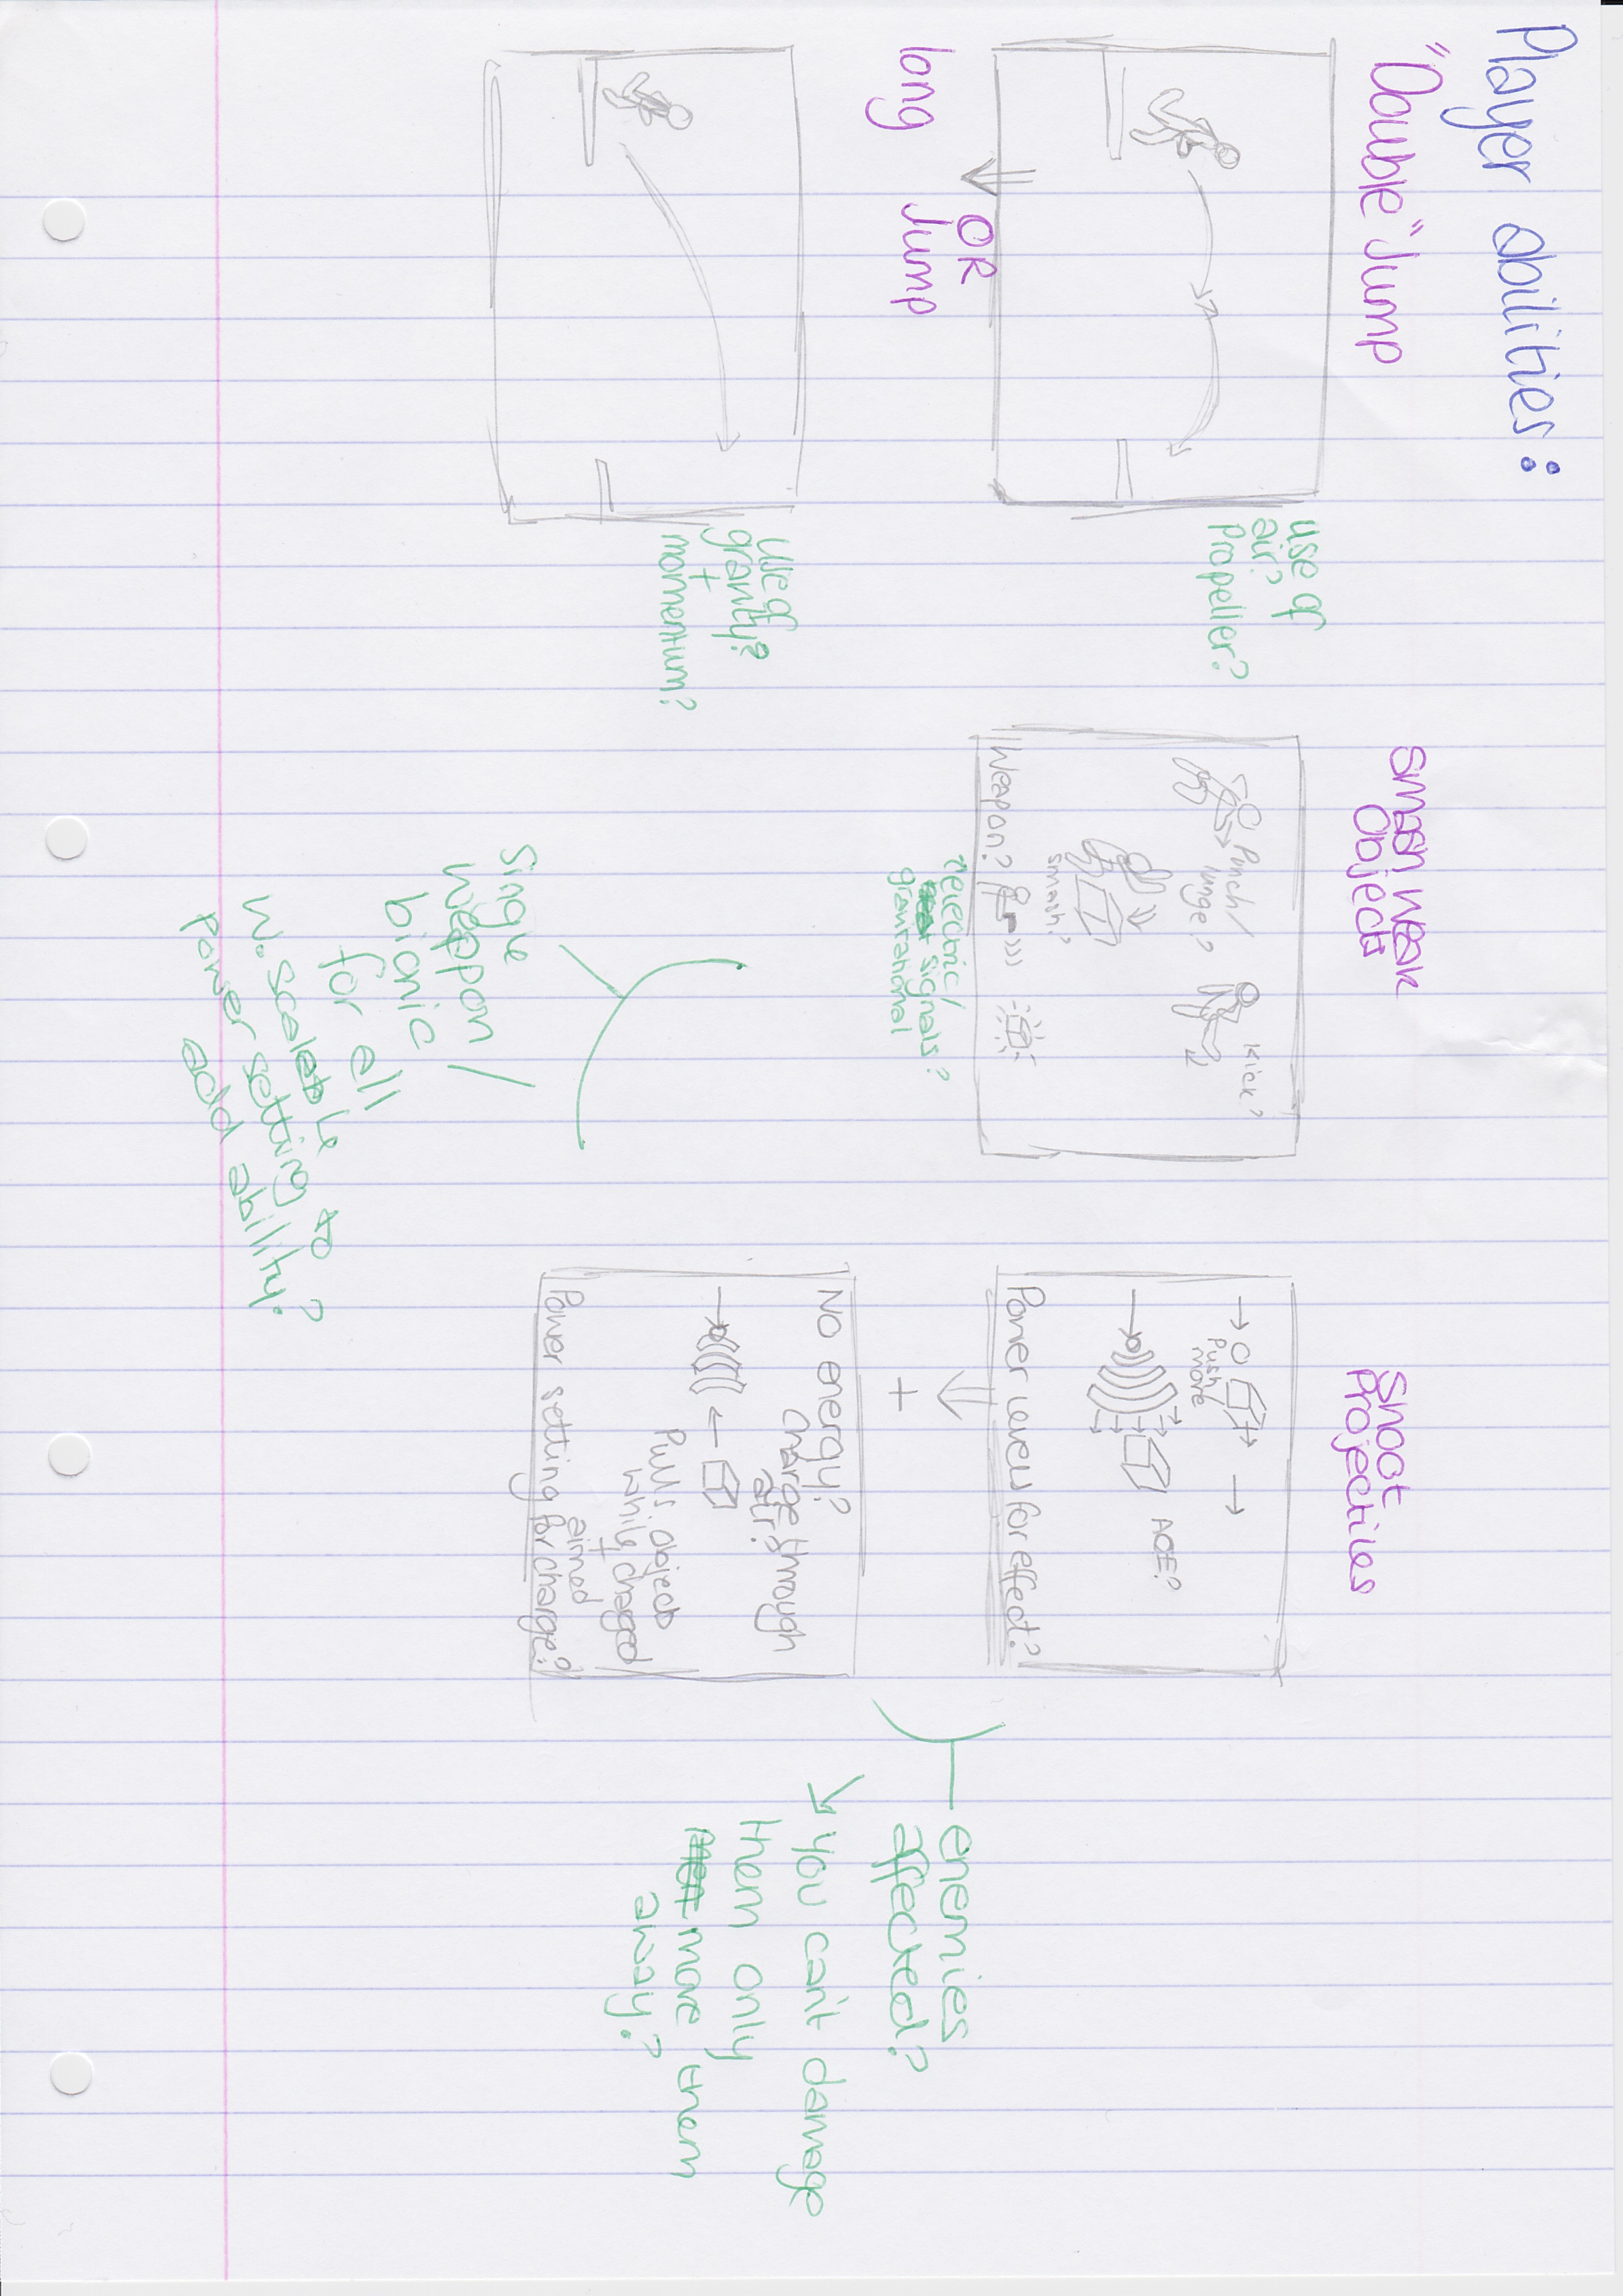 Player abilities:
"Double" Jump
use of
air?
Propeller?
OR
long Jump
use of
gravity?
+
momentum?
Smash weak
Objects
Punch/
lunge?
Kick?
smash?
Weapon?
electric/
signals?
gravitational
Single
weapon/
bionic
for all
w. scaleble
power setting to
add ability?
Shoot
Projectiles
Push/
move
AOE?
Power levels for effect?
+
No energy?
Charge through
air?
Pulls objects
while charged
+
aimed
Power setting for charge?
enemies
affected?
you can't damage
them only
move them
away?